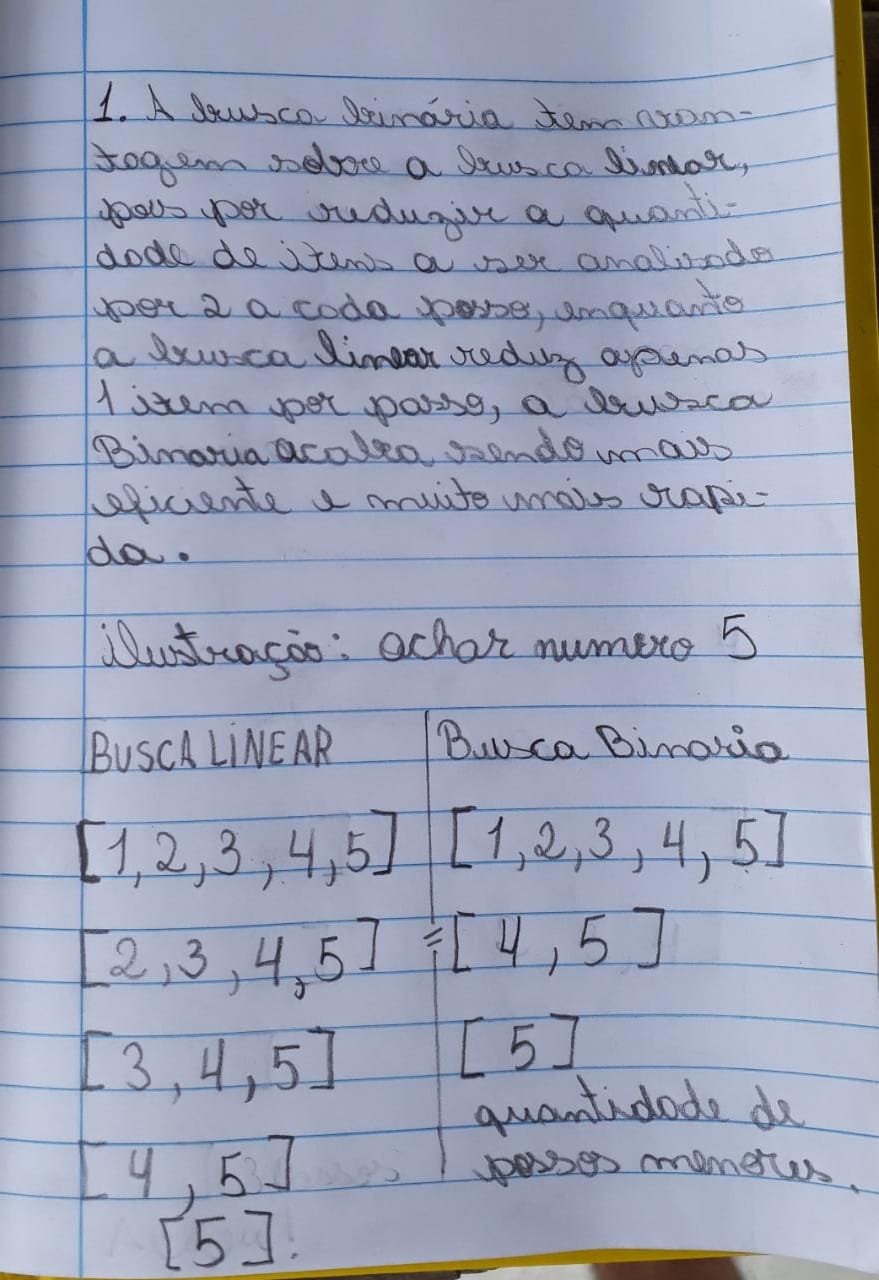 1. A busca binária tem van-
tagem sobre a busca linear,
pois por reduzir a quanti-
dade de itens a ser analizado
por 2 a cada passo, enquanto
a busca linear reduz apenas
1 item por passo, a busca
Binaria acaba sendo mais
eficiente e muito mais rapi-
da.
ilustração: achar numero 5
BUSCA LINEAR
[1,2,3,4,5]
[2,3,4,5]
[3,4,5]
[4,5]
[5].
Busca Binaria
[1,2,3,4,5]
≠ [4,5]
[5]
quantidade de
passos menores.